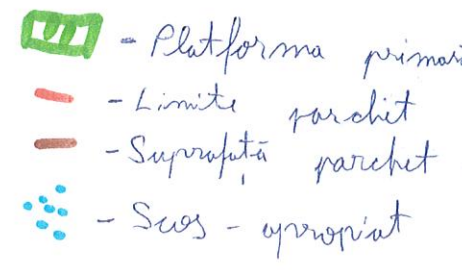 - Platforma primar
- Limite parchet
- Suprafață parchet
- Scos - apropiat